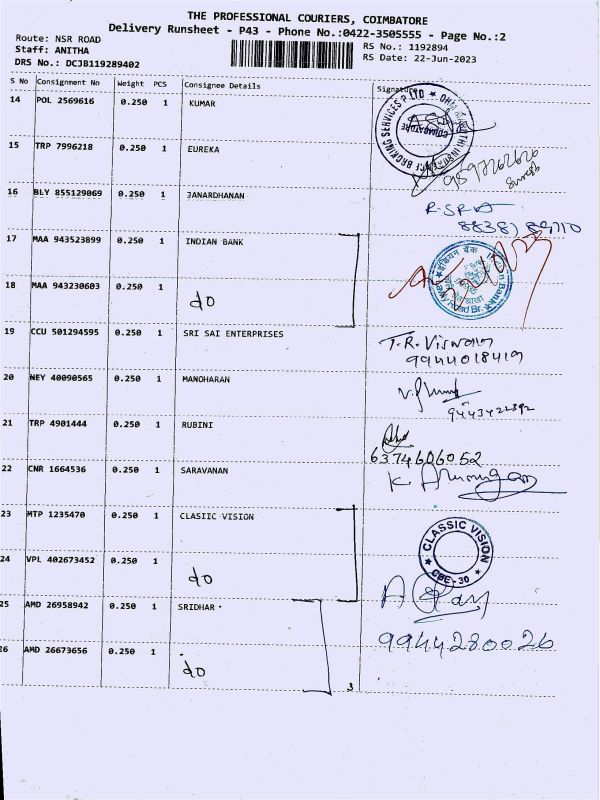 THE PROFESSIONAL COURIERS, COIMBATORE
Delivery Runsheet - P43 - Phone No.:0422-3505555 - Page No.:2
Route: NSR ROAD
Staff: ANITHA
DRS No.: DCJB119289402
RS No.: 1192894
RS Date: 22-Jun-2023
S No Consignment No Weight PCS Consignee Details Signature
14 POL 2569616 0.250 1 KUMAR
15 TRP 7996218 0.250 1 EUREKA
16 BLY 855129069 0.250 1 JANARDHANAN
17 MAA 943523899 0.250 1 INDIAN BANK
18 MAA 943230603 0.250 1 do
19 CCU 501294595 0.250 1 SRI SAI ENTERPRISES T.R. Viswan
9944018419
20 NEY 40090565 0.250 1 MANOHARAN
9443422392
21 TRP 4901444 0.250 1 RUBINI
6374606052
22 CNR 1664536 0.250 1 SARAVANAN K Arumugam
23 MTP 1235470 0.250 1 CLASIIC VISION CLASSIC VISION
CBE-30
24 VPL 402673452 0.250 1 do
25 AMD 26958942 0.250 1 SRIDHAR
9944280026
26 AMD 26673656 0.250 1 do
3